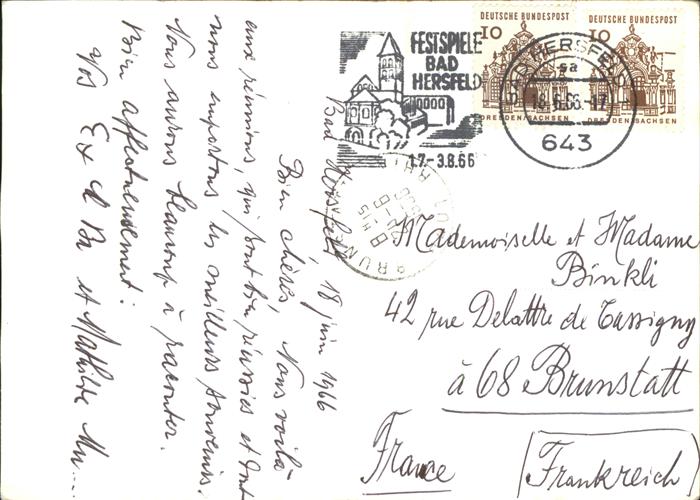 Bad Hersfeld 18 juin 1966
Bien chères, Nous voilà
aux réunions, qui sont bien réussies et dont
nous emportons les meilleurs souvenirs.
Nous aurons beaucoup à raconter.
Bien affectueusement:
Vos Ex et Mathilde
FESTSPIELE
BAD
HERSFELD
1.7.-3.8.66
DEUTSCHE BUNDESPOST
10
DRESDEN/SACHSEN
DEUTSCHE BUNDESPOST
10
DRESDEN/SACHSEN
BAD HERSFELD
sa
18.6.66.-17
643
Mademoiselle et Madame
Binkli
42 rue Delattre de Tassigny
à 68 Brunstatt
France
(Frankreich)